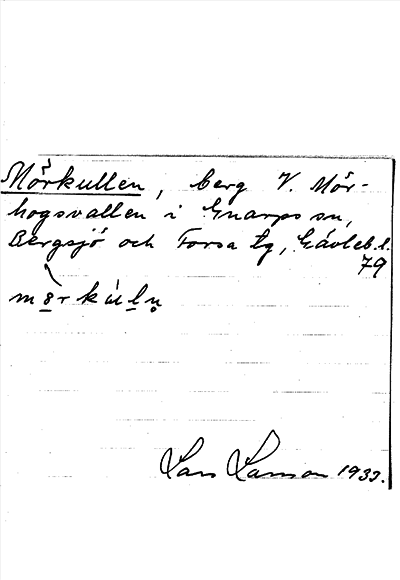 Mörkullen, berg V. Mör-
hogsvallen i Gnarps sn,
Bergsjö och Forsa tg, Gävleb. l.
79
mörkúln̥
Lars Larsson 1933.